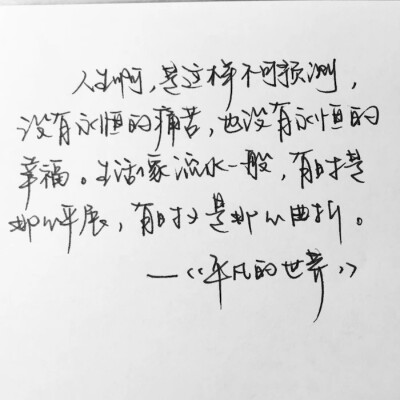 人生啊，是这样不可预测，
没有永恒的痛苦，也没有永恒的
幸福。生活像流水一般，有时是
那么平展，有时又是那么曲折。
——《平凡的世界》